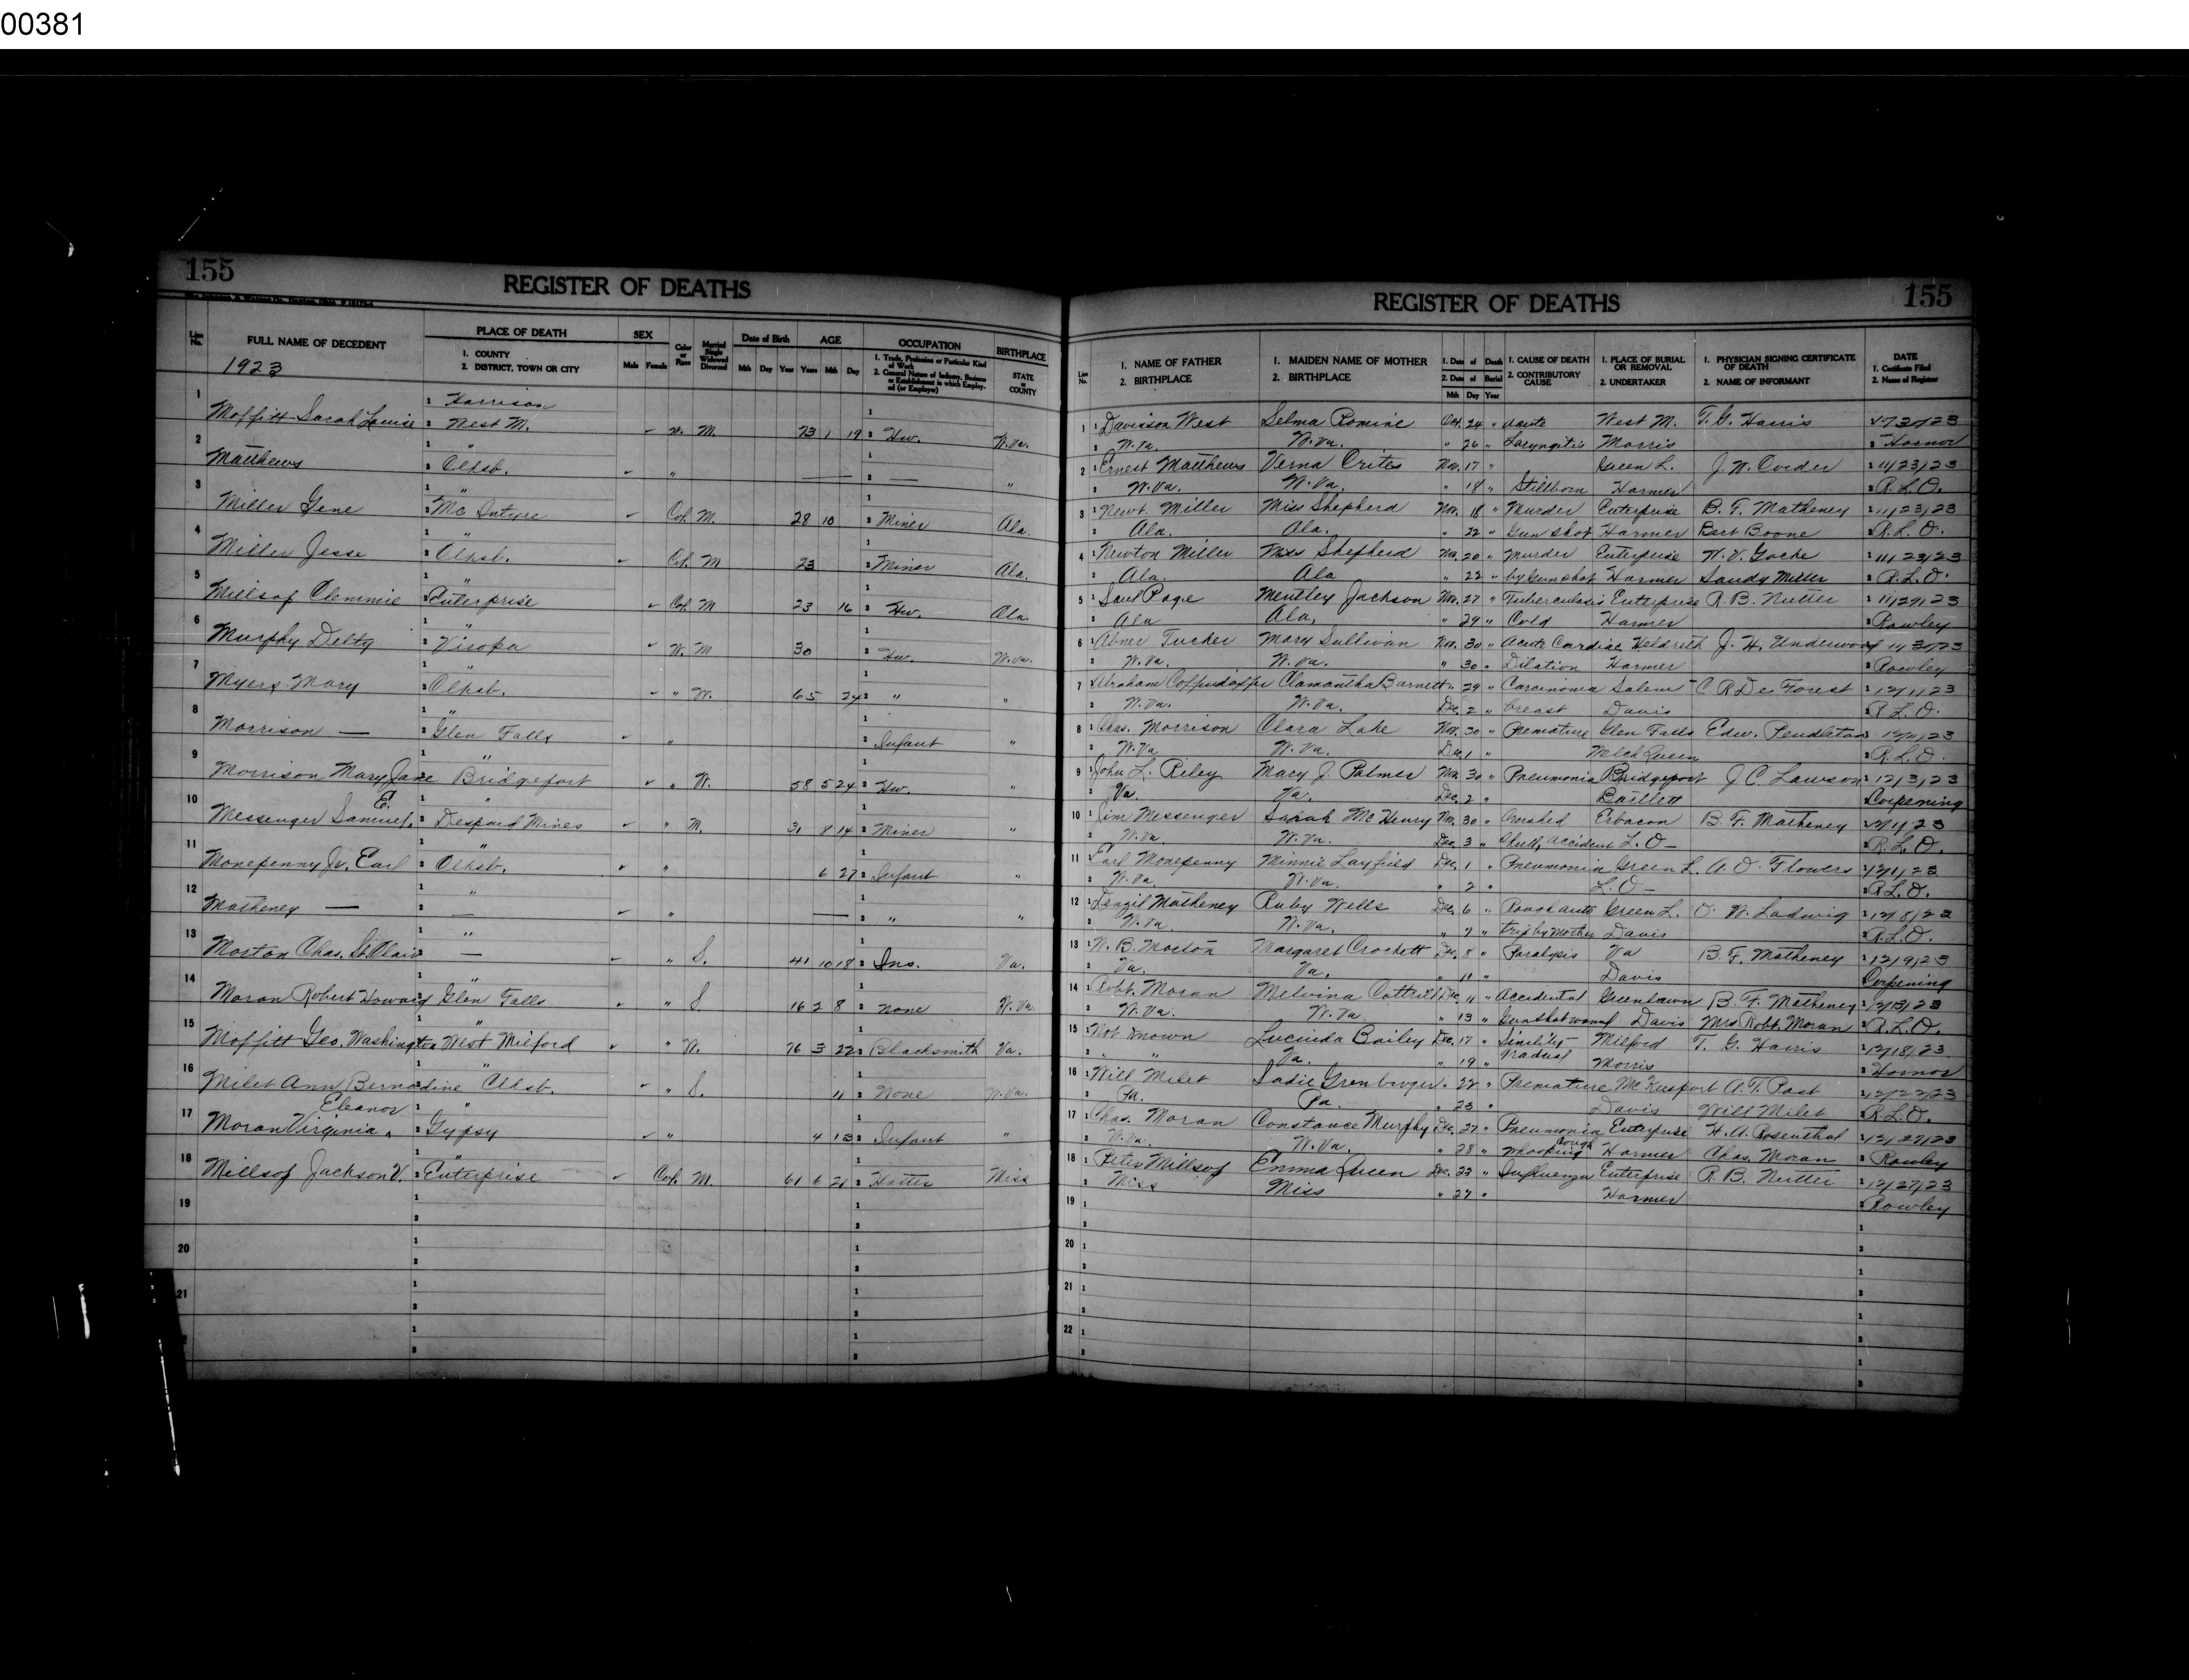 00381
155
REGISTER OF DEATHS
Line No.
FULL NAME OF DECEDENT
1923
PLACE OF DEATH
1. COUNTY
2. DISTRICT, TOWN OR CITY
SEX
Male Female
Color or Race
Married Single Widowed Divorced
Date of Birth
Mth Day Year
AGE
Years Mth Day
OCCUPATION
1. Trade, Profession or Particular Kind of Work
2. General Nature of Industry, Business or Establishment in which Employed (or Employer)
BIRTHPLACE
STATE or COUNTY
1 Harrison
Moffitt Sarah Louise West M. W. M. 73 1 19 Hw. W.Va.
2 "
Matthews Clksb. " — — "
3 "
Miller Gene Mc Intyre Col. M. 28 10 Miner Ala.
4 "
Miller Jesse Clksb. Col. M 23 Miner Ala.
5 "
Millsap Clemmie Enterprise Col. M 23 16 Hw. Ala.
6 "
Murphy Delta Viropa W. M 30 Hw. W.Va.
7 "
Myers Mary Clksb. " W. 65 24 " "
8 "
Morrison — Glen Falls " Infant "
9 "
Morrison Mary Jane Bridgeport " W. 58 5 24 Hw. "
10 "
Messenger Samuel E. Despard Mines " M. 31 8 14 Miner "
11 "
Monepenny Jr. Earl Clksb. " 6 27 Infant "
12 "
Matheney — — " — " "
13 "
Morton Chas. St Clair — " S. 41 10 18 Ins. Va.
14 "
Moran Robert Howard Glen Falls " S 16 2 8 None W.Va.
15 "
Moffitt Geo. Washington West Milford " W. 76 3 22 Blacksmith Va.
16 "
Milet Ann Bernadine Clksb. " S. 11 None W.Va.
17 Eleanor "
Moran Virginia Gypsy " 4 13 Infant "
18 "
Millsop Jackson V. Enterprise Col. M. 61 6 21 Miss
19
20
21
155
REGISTER OF DEATHS
Line No.
1. NAME OF FATHER
2. BIRTHPLACE
1. MAIDEN NAME OF MOTHER
2. BIRTHPLACE
1. Date of Death
2. Date of Burial
Mth Day Year
1. CAUSE OF DEATH
2. CONTRIBUTORY CAUSE
1. PLACE OF BURIAL OR REMOVAL
2. UNDERTAKER
1. PHYSICIAN SIGNING CERTIFICATE OF DEATH
2. NAME OF INFORMANT
DATE
1. Certificate Filed
2. Name of Registrar
1 Davisson West Selma Romine Oct. 24 " Acute West M. T. G. Harris
W.Va. W.Va. " 26 " Laryngitis Morris Hornor
2 Ernest Matthews Verna Crites Nov. 17 " Green L. J. W. Corder 11/23/23
W.Va. W.Va. " 18 " Stillborn Harmer R.L.O.
3 Newt. Miller Miss Shepherd Nov. 18 " Murder Enterprise B. F. Matheney 11/23/23
Ala. Ala. " 22 " Gun shot Harmer Bert Boone R.L.O.
4 Newton Miller Miss Shepherd Nov. 20 " Murder Enterprise W. V. Gocke 11/23/23
Ala. Ala " 22 " by Gun shot Harmer Sandy Miller R.L.O.
5 Saul Page Mentley Jackson Nov. 27 " Tuberculosis Enterprise R. B. Nutter 11/29/23
Ala Ala. " 29 " Cold Harmer Rowley
6 Abner Tucker Mary Sullivan Nov. 30 " Acute Cardiac Heldreth J. H. Underwood
W.Va. W.Va. " 30 " Dilation Harmer Rowley
7 Abraham Coffindaffer Clamantha Barnett " 29 " Carcinoma Salem C R De Forest 12/1/23
W.Va. W.Va. Dec. 2 " breast Davis R.L.O.
8 Chas. Morrison Clara Lake Nov. 30 " Premature Glen Falls Edw. Pendleton
W.Va W.Va. Dec. 1 " R.L.O.
9 John L. Riley Mary J. Palmer Nov. 30 " Pneumonia Bridgeport J. C. Lawson 12/3/23
Va. Va. Dec. 2 " Bartlett Corpening
10 Jim Messenger Sarah McHenry Nov. 30 " Crushed Erbacon B. F. Matheney
W.Va W.Va. Dec. 3 " Skull, accident L. O — R.L.O.
11 Earl Monepenny Minnie Layfield Dec. 1 " Pneumonia Green L. A. O. Flowers
W.Va. W.Va. " 2 " L. O — R.L.O.
12 Denzil Matheney Ruby Wells Dec. 6 " Rough auto Green L. O. W. Ladwig 12/8/23
W.Va W.Va. " 7 " trip by mother Davis R.L.O.
13 W. B. Morton Margaret Crockett Dec. 8 " Paralysis Va B. F. Matheney 12/9/23
Va. Va. " 11 " Davis Corpening
14 Robt. Moran Melvina Cottrill Dec. 11 " Accidental Greenlawn B. F. Matheney 12/13/23
W.Va. W.Va. " 13 " Gunshot wound Davis Mrs Robt. Moran R.L.O.
15 Not known Lucinda Bailey Dec. 17 " Senility Milford T. G. Harris 12/18/23
" " Va. " 19 " Gradual Morris Hornor
16 Will Milet Sadie Grenberger " 22 " Premature McKeesport A. T. Post
Pa. Pa. " 23 " Davis Will Milet R.L.O.
17 Chas. Moran Constance Murphy Dec. 27 " Pneumonia Enterprise H. A. Rosenthal 12/27/23
W.Va. W.Va. " 28 " Whooping Cough Harmer Chas. Moran Rowley
18 Peter Millsop Emma Queen Dec. 23 " Influenza Enterprise R. B. Nutter 12/27/23
Miss Miss " 27 " Harmer Rowley
19
20
21
22